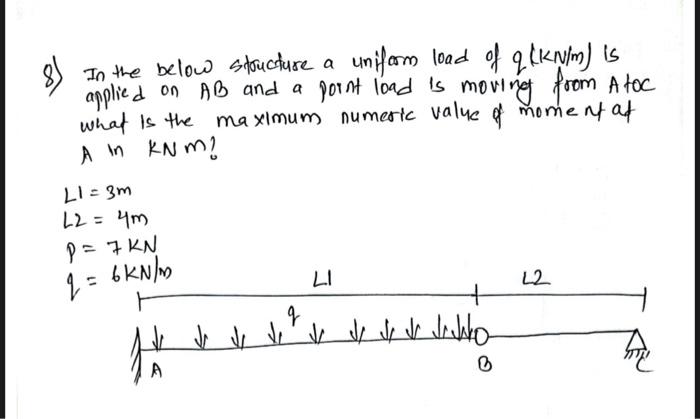 8) In the below structure a uniform load of q (KN/m) is
applied on AB and a point load is moving from A to C
what is the maximum numeric value of moment at
A in KN m?
L1 = 3m
L2 = 4m
P = 7 KN
q = 6 KN/m
L1 L2
q
A B C